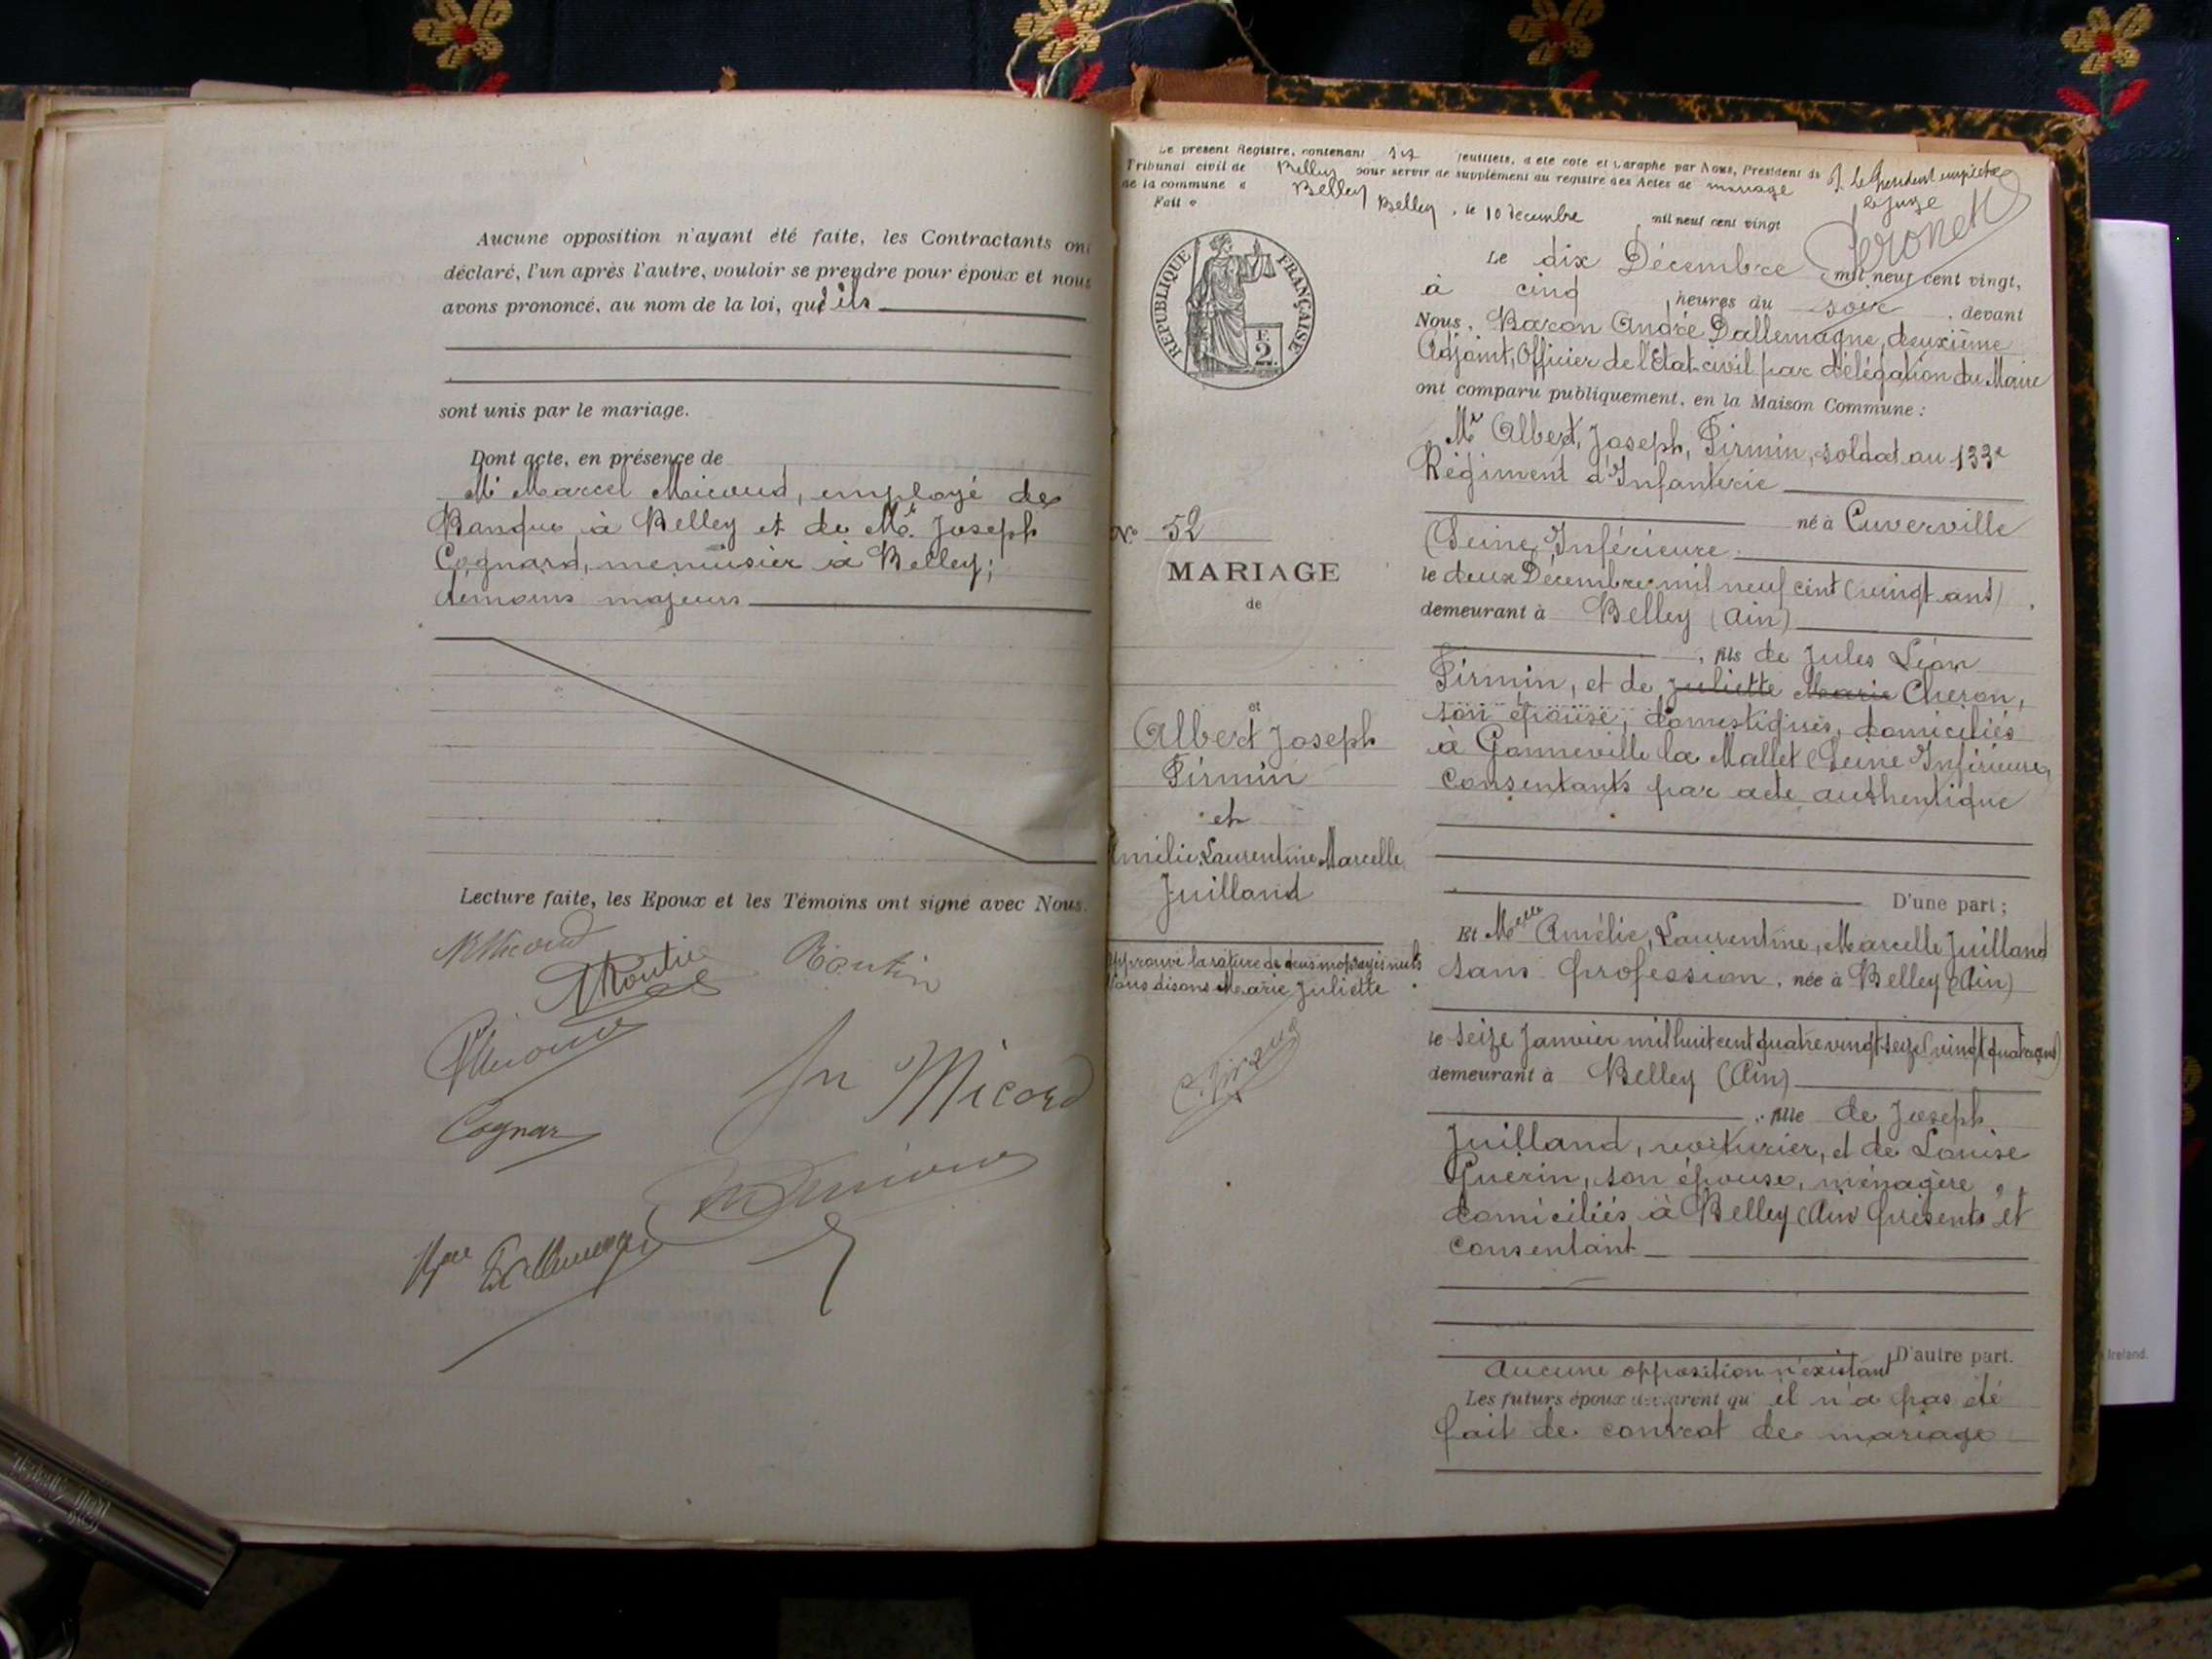 Aucune opposition n'ayant été faite, les Contractants ont
déclaré, l'un après l'autre, vouloir se prendre pour époux et nous
avons prononcé, au nom de la loi, qu'ils
sont unis par le mariage.
Dont acte, en présence de
Mr Marcel Micoud, employé de
Banque à Belley et de Mr. Joseph
Cognard, menuisier à Belley;
témoins majeurs
Lecture faite, les Epoux et les Témoins ont signé avec Nous.
Routin
Cognar
Micord
Le présent Registre, contenant six feuillets, a été coté et paraphé par Nous, Président du
Tribunal civil de Belley pour servir de supplément au registre des Actes de mariage
de la commune d Belley
P. Le Président empêché
le juge
Fait à Belley, le 10 décembre mil neuf cent vingt
REPUBLIQUE FRANÇAISE
F.
2.
Le dix Décembre mil neuf cent vingt,
à cinq heures du soir, devant
Nous, Baron André Dallemagne, deuxième
Adjoint, Officier de l'Etat-civil par délégation du Maire
ont comparu publiquement, en la Maison Commune :
Mr Albert, Joseph, Firmin, soldat au 133e
Régiment d'Infanterie
né à Cuverville
(Seine Inférieure
le deux Décembre mil neuf cent (vingt ans)
demeurant à Belley (Ain)
, fils de Jules Léon
Firmin, et de Juliette Marie Cheron,
son épouse, domestiques, domiciliés
à Gonneville la Mallet (Seine Inférieure,
Consentants par acte authentique
D'une part;
Et Melle Amélie, Laurentine, Marcelle Juilland
sans profession, née à Belley (Ain)
le seize Janvier mil huit cent quatre vingt seize (vingt quatre ans)
demeurant à Belley (Ain)
, fille de Joseph
Juilland, voiturier, et de Louise
Guérin, son épouse, ménagère,
domiciliés à Belley (Ain présents et
Consentant
D'autre part.
Aucune opposition n'existant
Les futurs époux déclarent qu'il n'a pas été
fait de contrat de mariage
No 52
MARIAGE
de
et
Albert Joseph
Firmin
et
Amélie Laurentine Marcelle
Juilland
Approuvé la rature de deux mots rayés nuls
Nous disons Marie Juliette
Ireland.